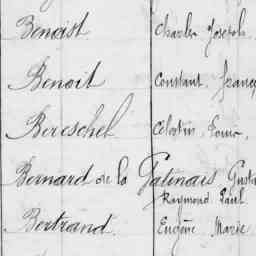 Benoist Charles Joseph
Benoit Constant Franç
Bereschel Célestin Louis
Bernard de la Gatinais Gusta
Raymond Paul
Bertrand Eugène Marie